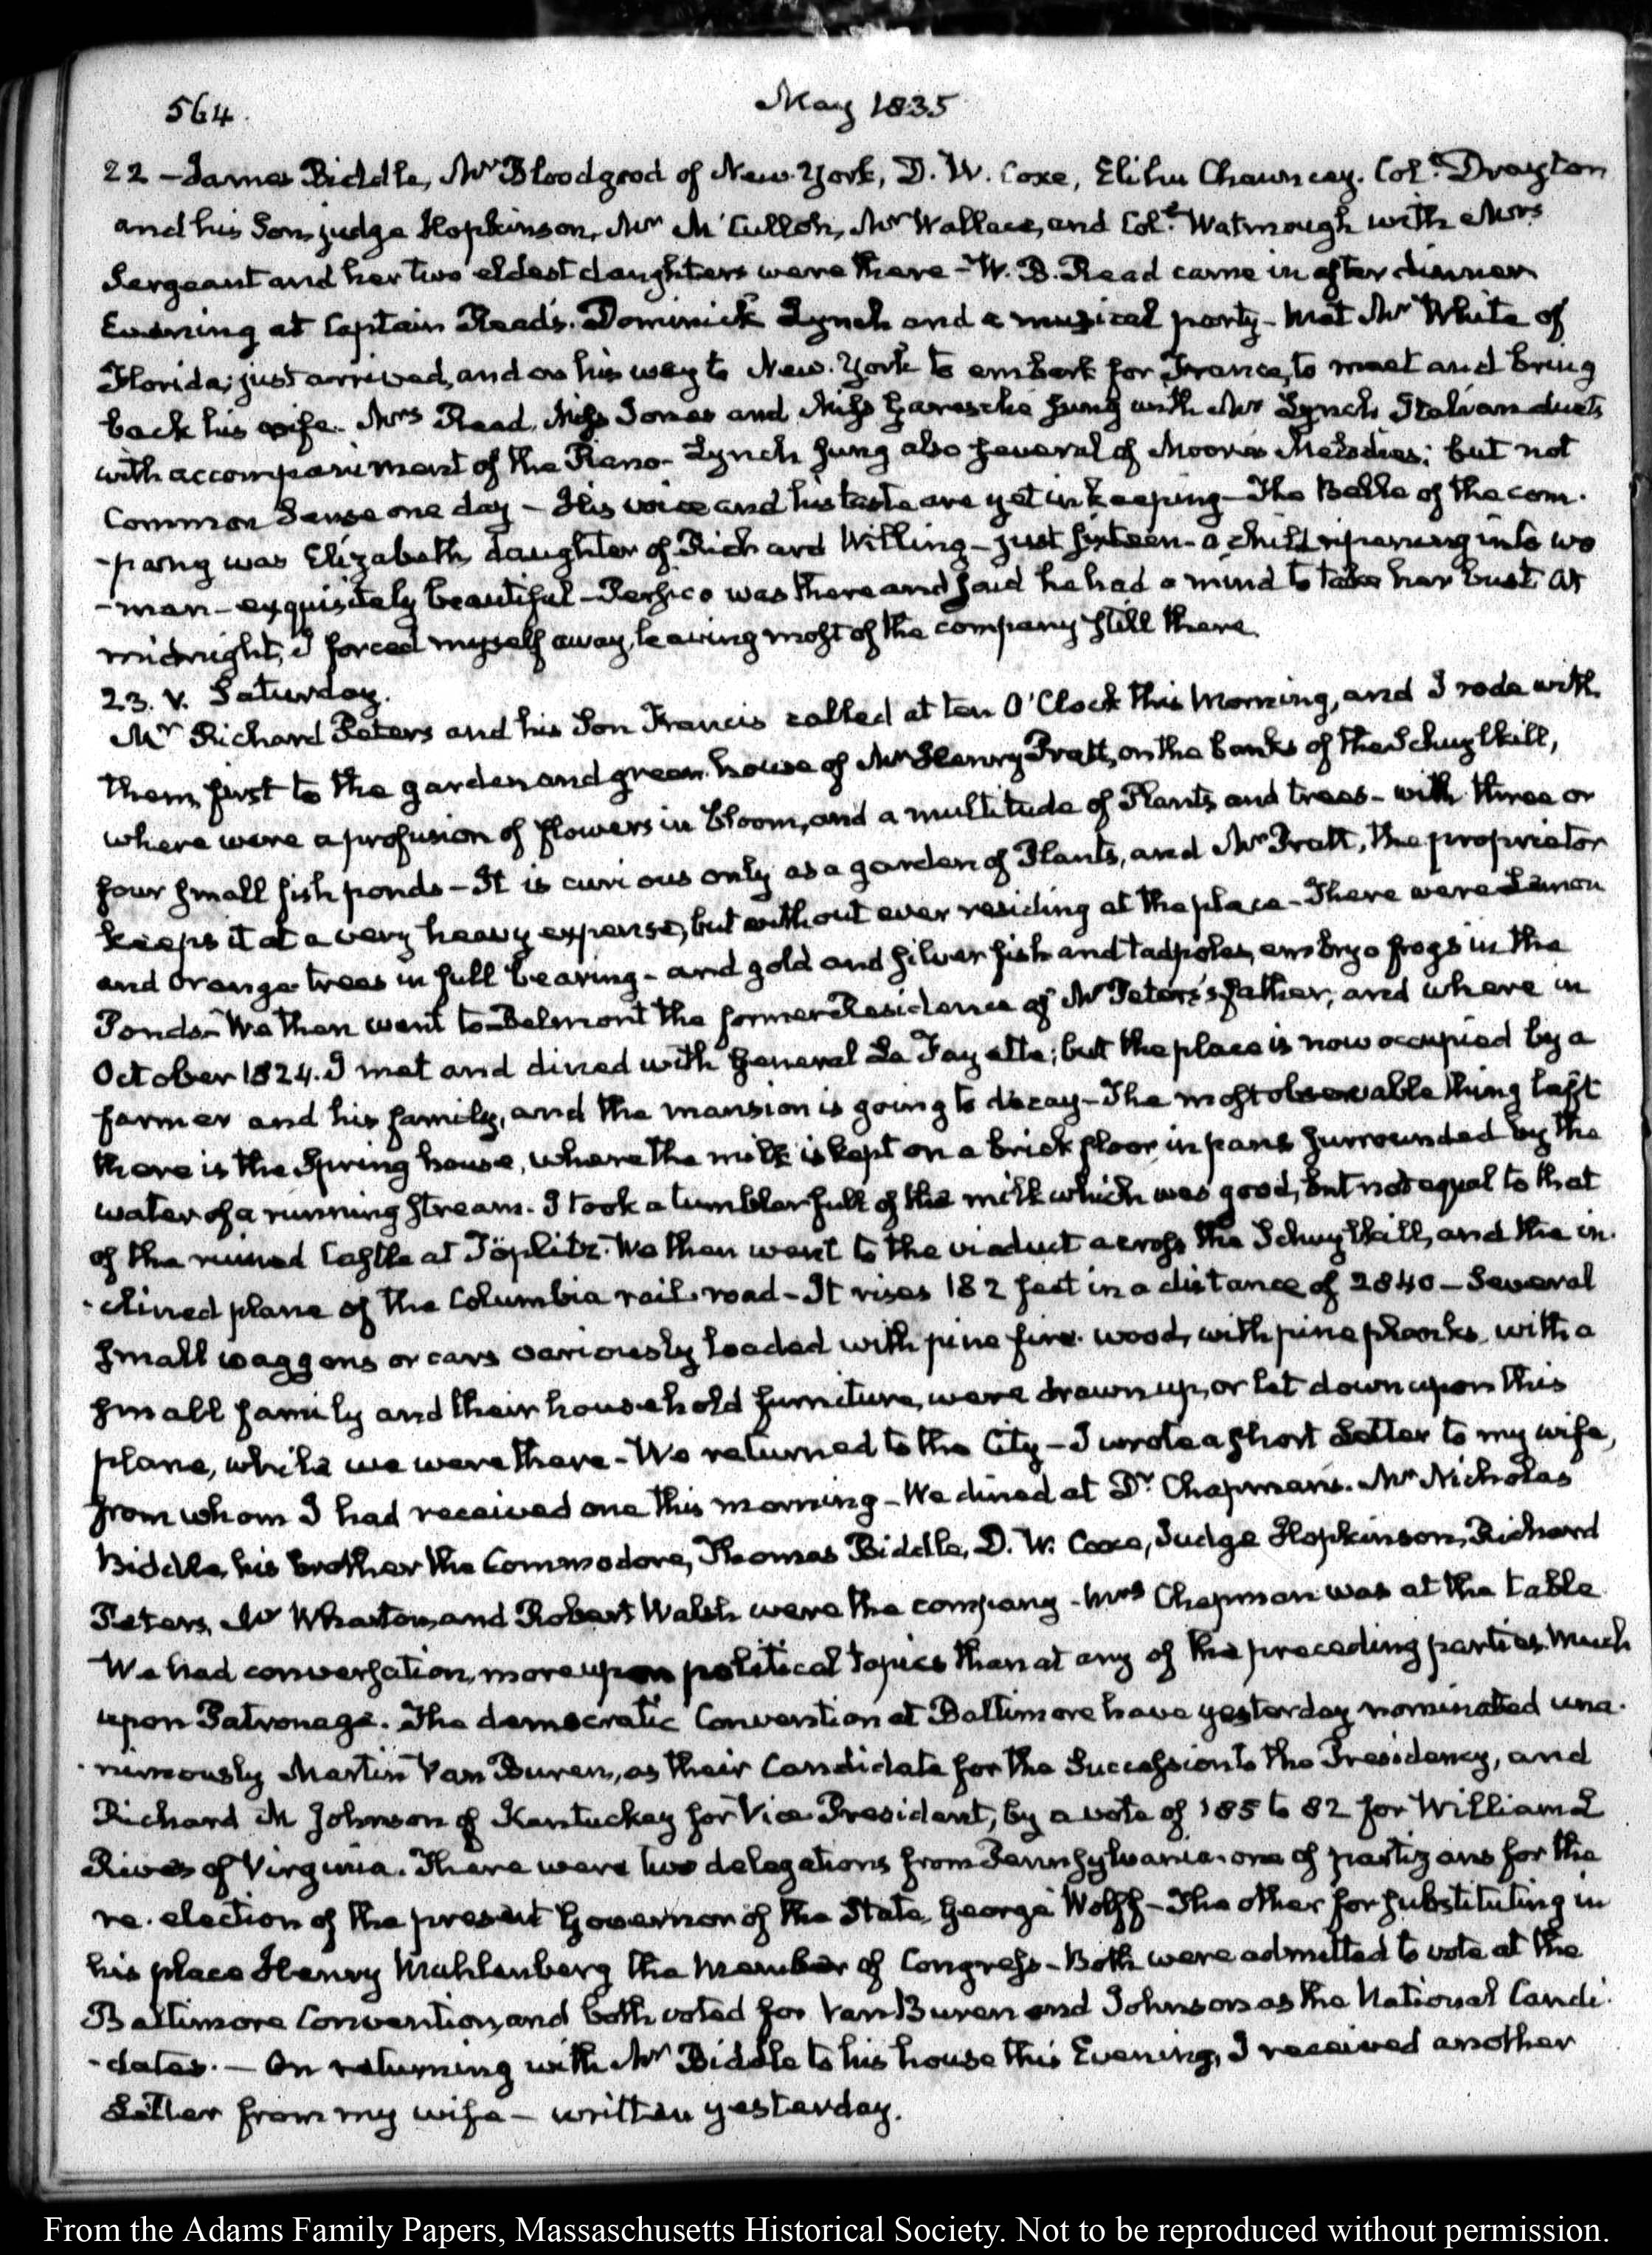 564.
May 1835
22 – James Biddle, Mr Bloodgood of New-York, D. W. Coxe, Elihu Chauncey. Coll. Drayton
and his Son, judge Hopkinson, Mr McCulloh, Mr Wallace, and Coll. Watmough with Mrs
Sergeant and her two eldest daughters were there – W. B. Read came in after dinner
Evening at Captain Read's. Dominick Lynch and a musical party – met Mr White of
Florida; just arrived, and on his way to New-York to embark for France, to meet and bring
back his wife. Mrs Read, Miss Jones and Miss Garesché sung with Mr Lynch Italian duets
with accompaniment of the Piano – Lynch sung also several of Moore's Melodies; but not
Common Sense one day – His voice and his taste are yet in keeping – The Belle of the com-
-pany was Elizabeth, daughter of Richard Willing – just sixteen – a child ripening into wo
-man – exquisitely beautiful – Persico was there and said he had a mind to take her bust At
midnight, I forced myself away, leaving most of the company still there.
23. V. Saturday.
Mr Richard Peters and his Son Francis called at ten O'Clock this Morning, and I rode with
them, first to the garden and green-house of Mr Henry Pratt, on the banks of the Schuylkill,
where were a profusion of flowers in bloom, and a multitude of Plants and trees – with three or
four small fish ponds – It is curious only as a garden of Plants, and Mr Pratt, the proprietor
keeps it at a very heavy expense, but without ever residing at the place – There were Lemon
and Orange trees in full bearing – and gold and silver fish and tadpoles, embryo frogs in the
Ponds – We then went to Belmont the former Residence of Mr Peters's father, and where in
October 1824. I met and dined with General La Fayette; but the place is now occupied by a
farmer and his family, and the mansion is going to decay – The most observable thing left
there is the Spring house, where the milk is kept on a brick floor in pans surrounded by the
water of a running stream. I took a tumbler full of the milk which was good, but not equal to that
of the ruined Castle at Töplitz. We then went to the viaduct across the Schuylkill, and the in-
-clined plane of the Columbia rail-road – It rises 182 feet in a distance of 2840 – Several
small waggons or cars variously loaded with pine fire-wood, with pine planks, with a
small family and their household furniture, were drawn up, or let down upon this
plane, while we were there – We returned to the City – I wrote a short Letter to my wife,
from whom I had received one this morning – We dined at Dr Chapman's. Mr Nicholas
Biddle, his brother the Commodore, Thomas Biddle, D. W. Coxe, Judge Hopkinson, Richard
Peters, Mr Wharton, and Robert Walsh were the company – Mrs Chapman was at the table
We had conversation, more upon political topics than at any of the preceding parties. Much
upon Patronage. The democratic Convention at Baltimore have yesterday nominated una-
-nimously Martin Van Buren, as their Candidate for the Succession to the Presidency, and
Richard M Johnson of Kentuckey for Vice-President, by a vote of 185 to 82 for William C
Rives of Virginia. There were two delegations from Pennsylvania. one of partizans for the
re-election of the present Governor of the State, George Wolff – The other for substituting in
his place Henry Muhlenberg the Member of Congress – Both were admitted to vote at the
Baltimore Convention, and both voted for Van Buren and Johnson as the National Candi-
-dates. – On returning with Mr Biddle to his house this Evening, I received another
Letter from my wife – written yesterday.
From the Adams Family Papers, Massaschusetts Historical Society. Not to be reproduced without permission.